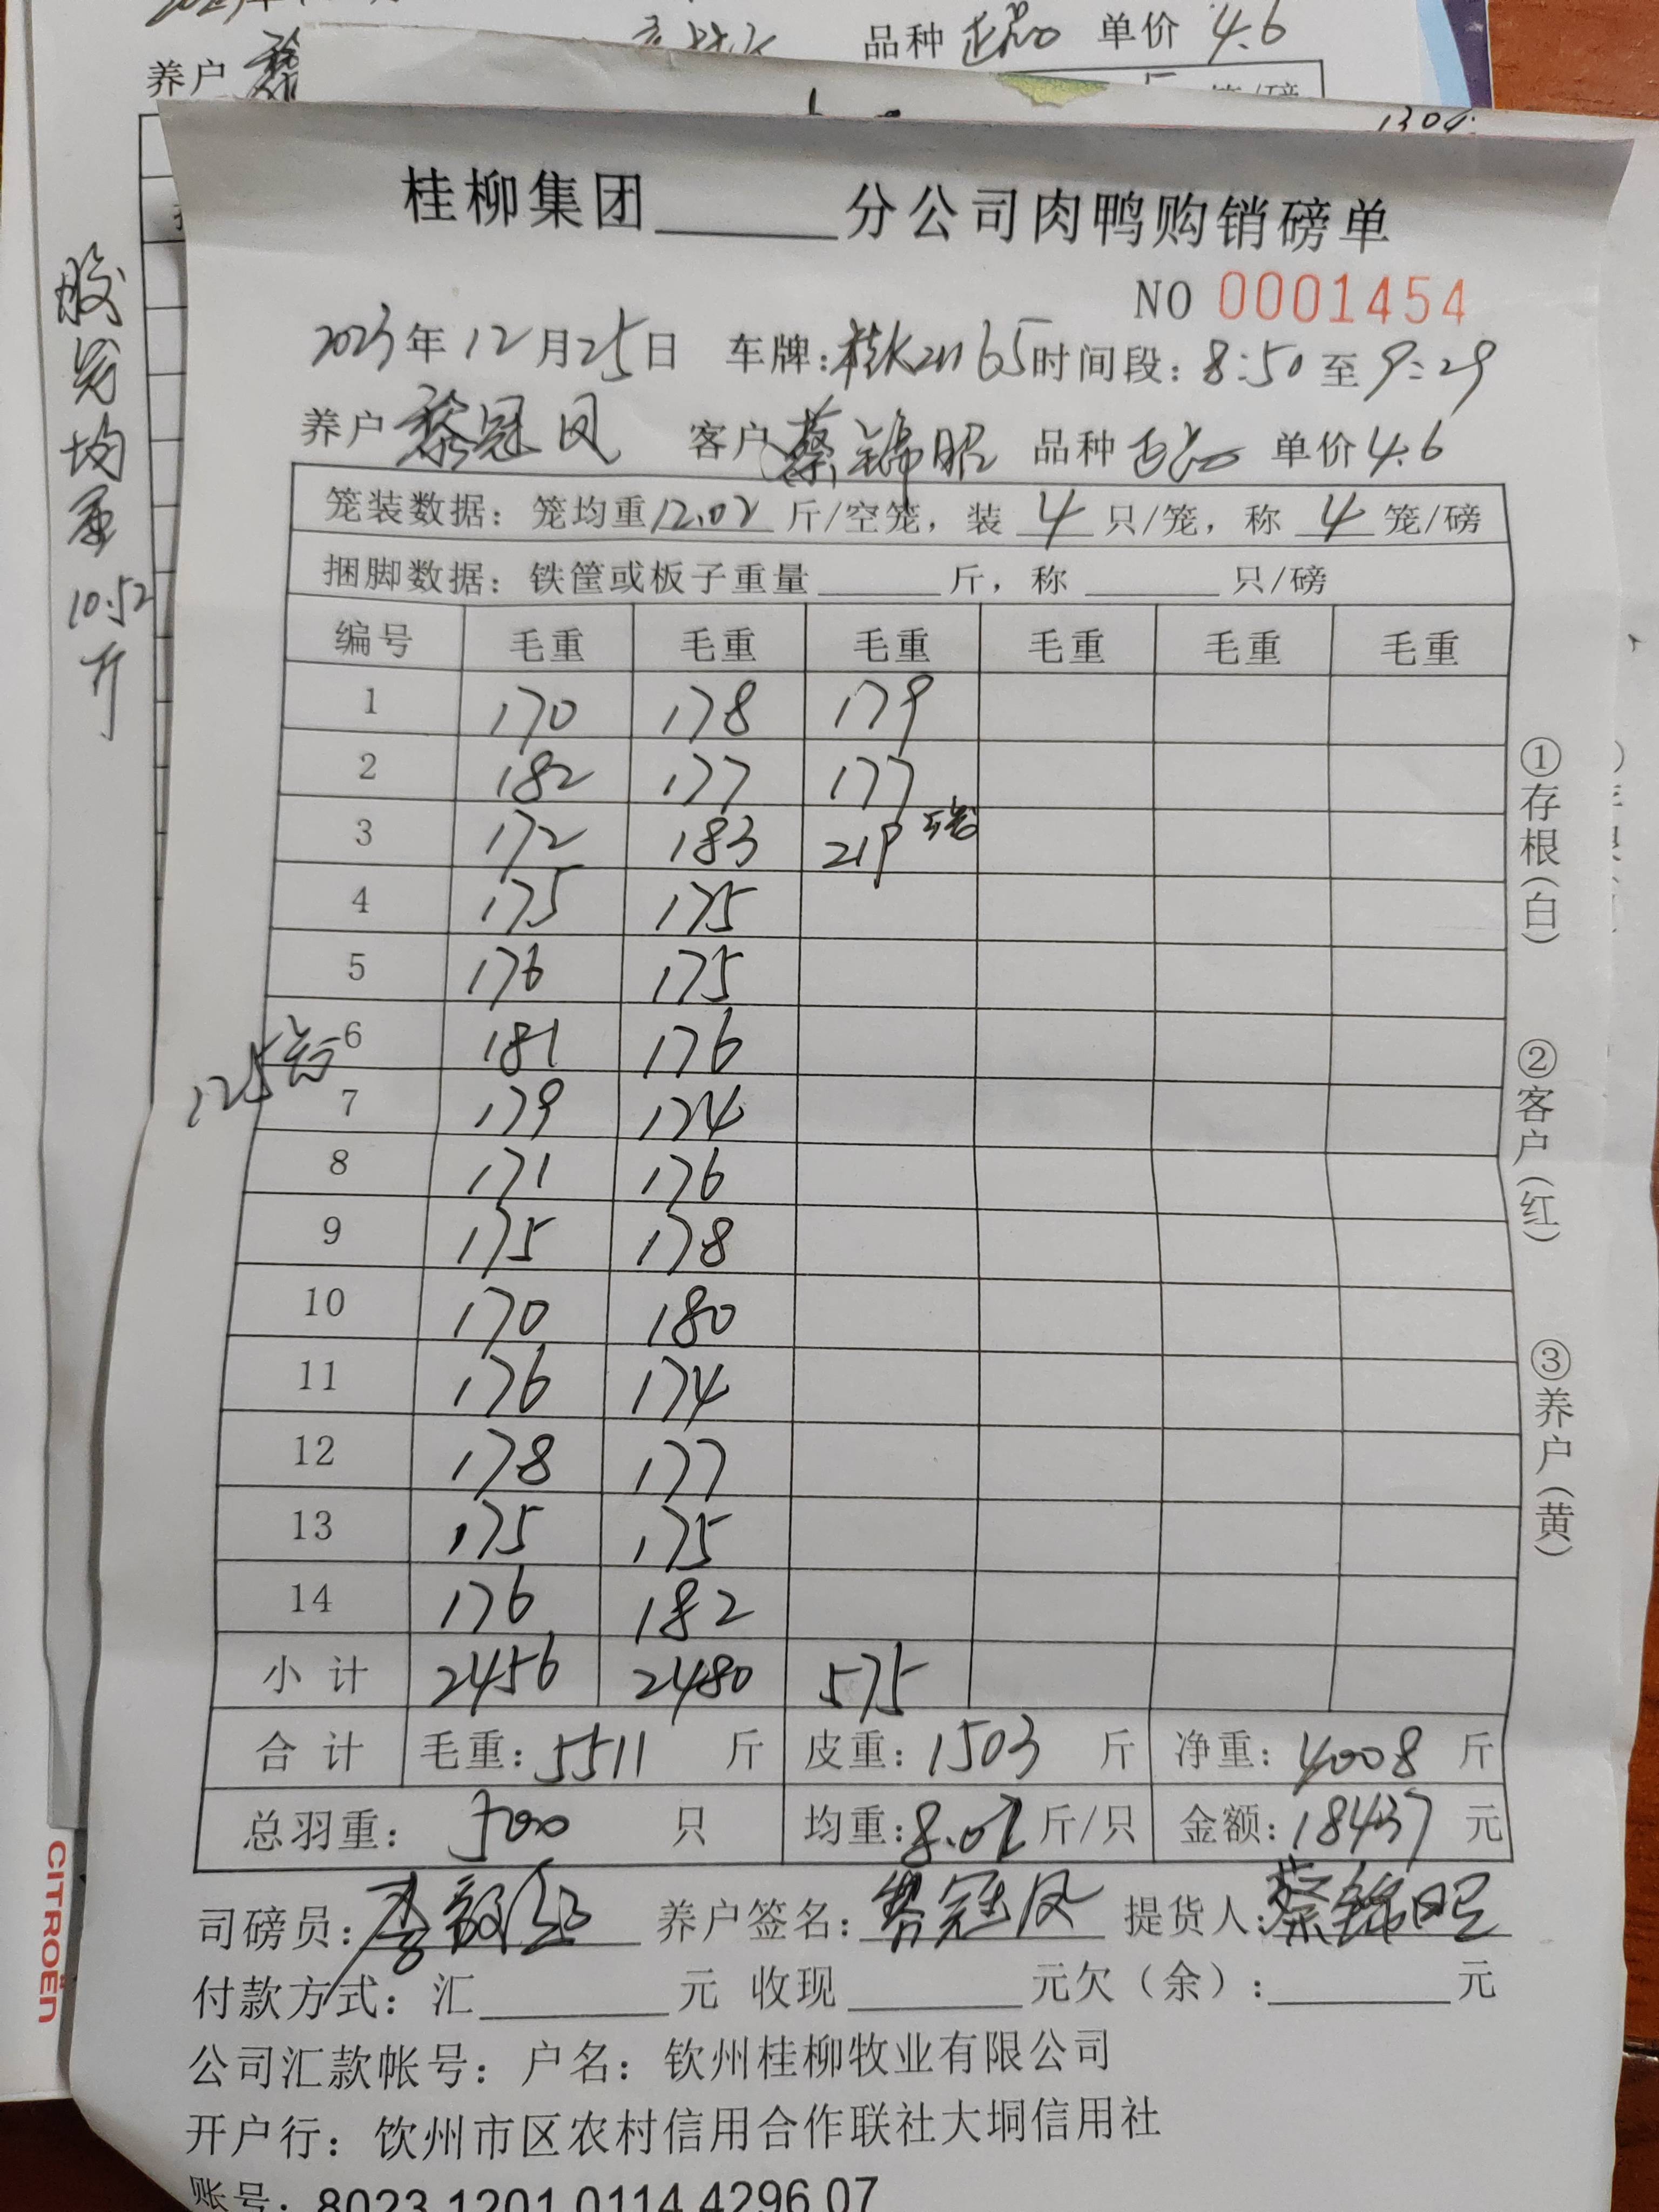 品种 正品 单价 4.6
养户
1304
桂柳集团______分公司肉鸭购销磅单
NO 0001454
2023年12月25日 车牌:桂K2H165时间段:8:50至9:29
养户黎冠凤 客户蔡锦昭 品种正品 单价4.6
笼装数据:笼均重12.02斤/空笼,装 4 只/笼,称 4 笼/磅
捆脚数据:铁筐或板子重量______斤,称______只/磅
编号 毛重 毛重 毛重 毛重 毛重 毛重
1 170 178 179
2 182 177 177
3 172 183 219 5笼
4 175 175
5 176 175
6 181 176
7 179 174
8 171 176
9 175 178
10 170 180
11 176 174
12 178 177
13 175 175
14 176 182
小计 2456 2480 575
合计 毛重:5511 斤 皮重:1503 斤 净重:4008 斤
总羽重:500 只 均重:8.02斤/只 金额:18437 元
司磅员: 养户签名:黎冠凤 提货人:蔡锦昭
付款方式:汇______元 收现______元欠(余):______元
公司汇款帐号:户名:钦州桂柳牧业有限公司
开户行:钦州市区农村信用合作联社大垌信用社
账号:8023 1201 0114 4296 07
①存根(白) ②客户(红) ③养户(黄)
125笼
均重
10.52
斤
CITROËN